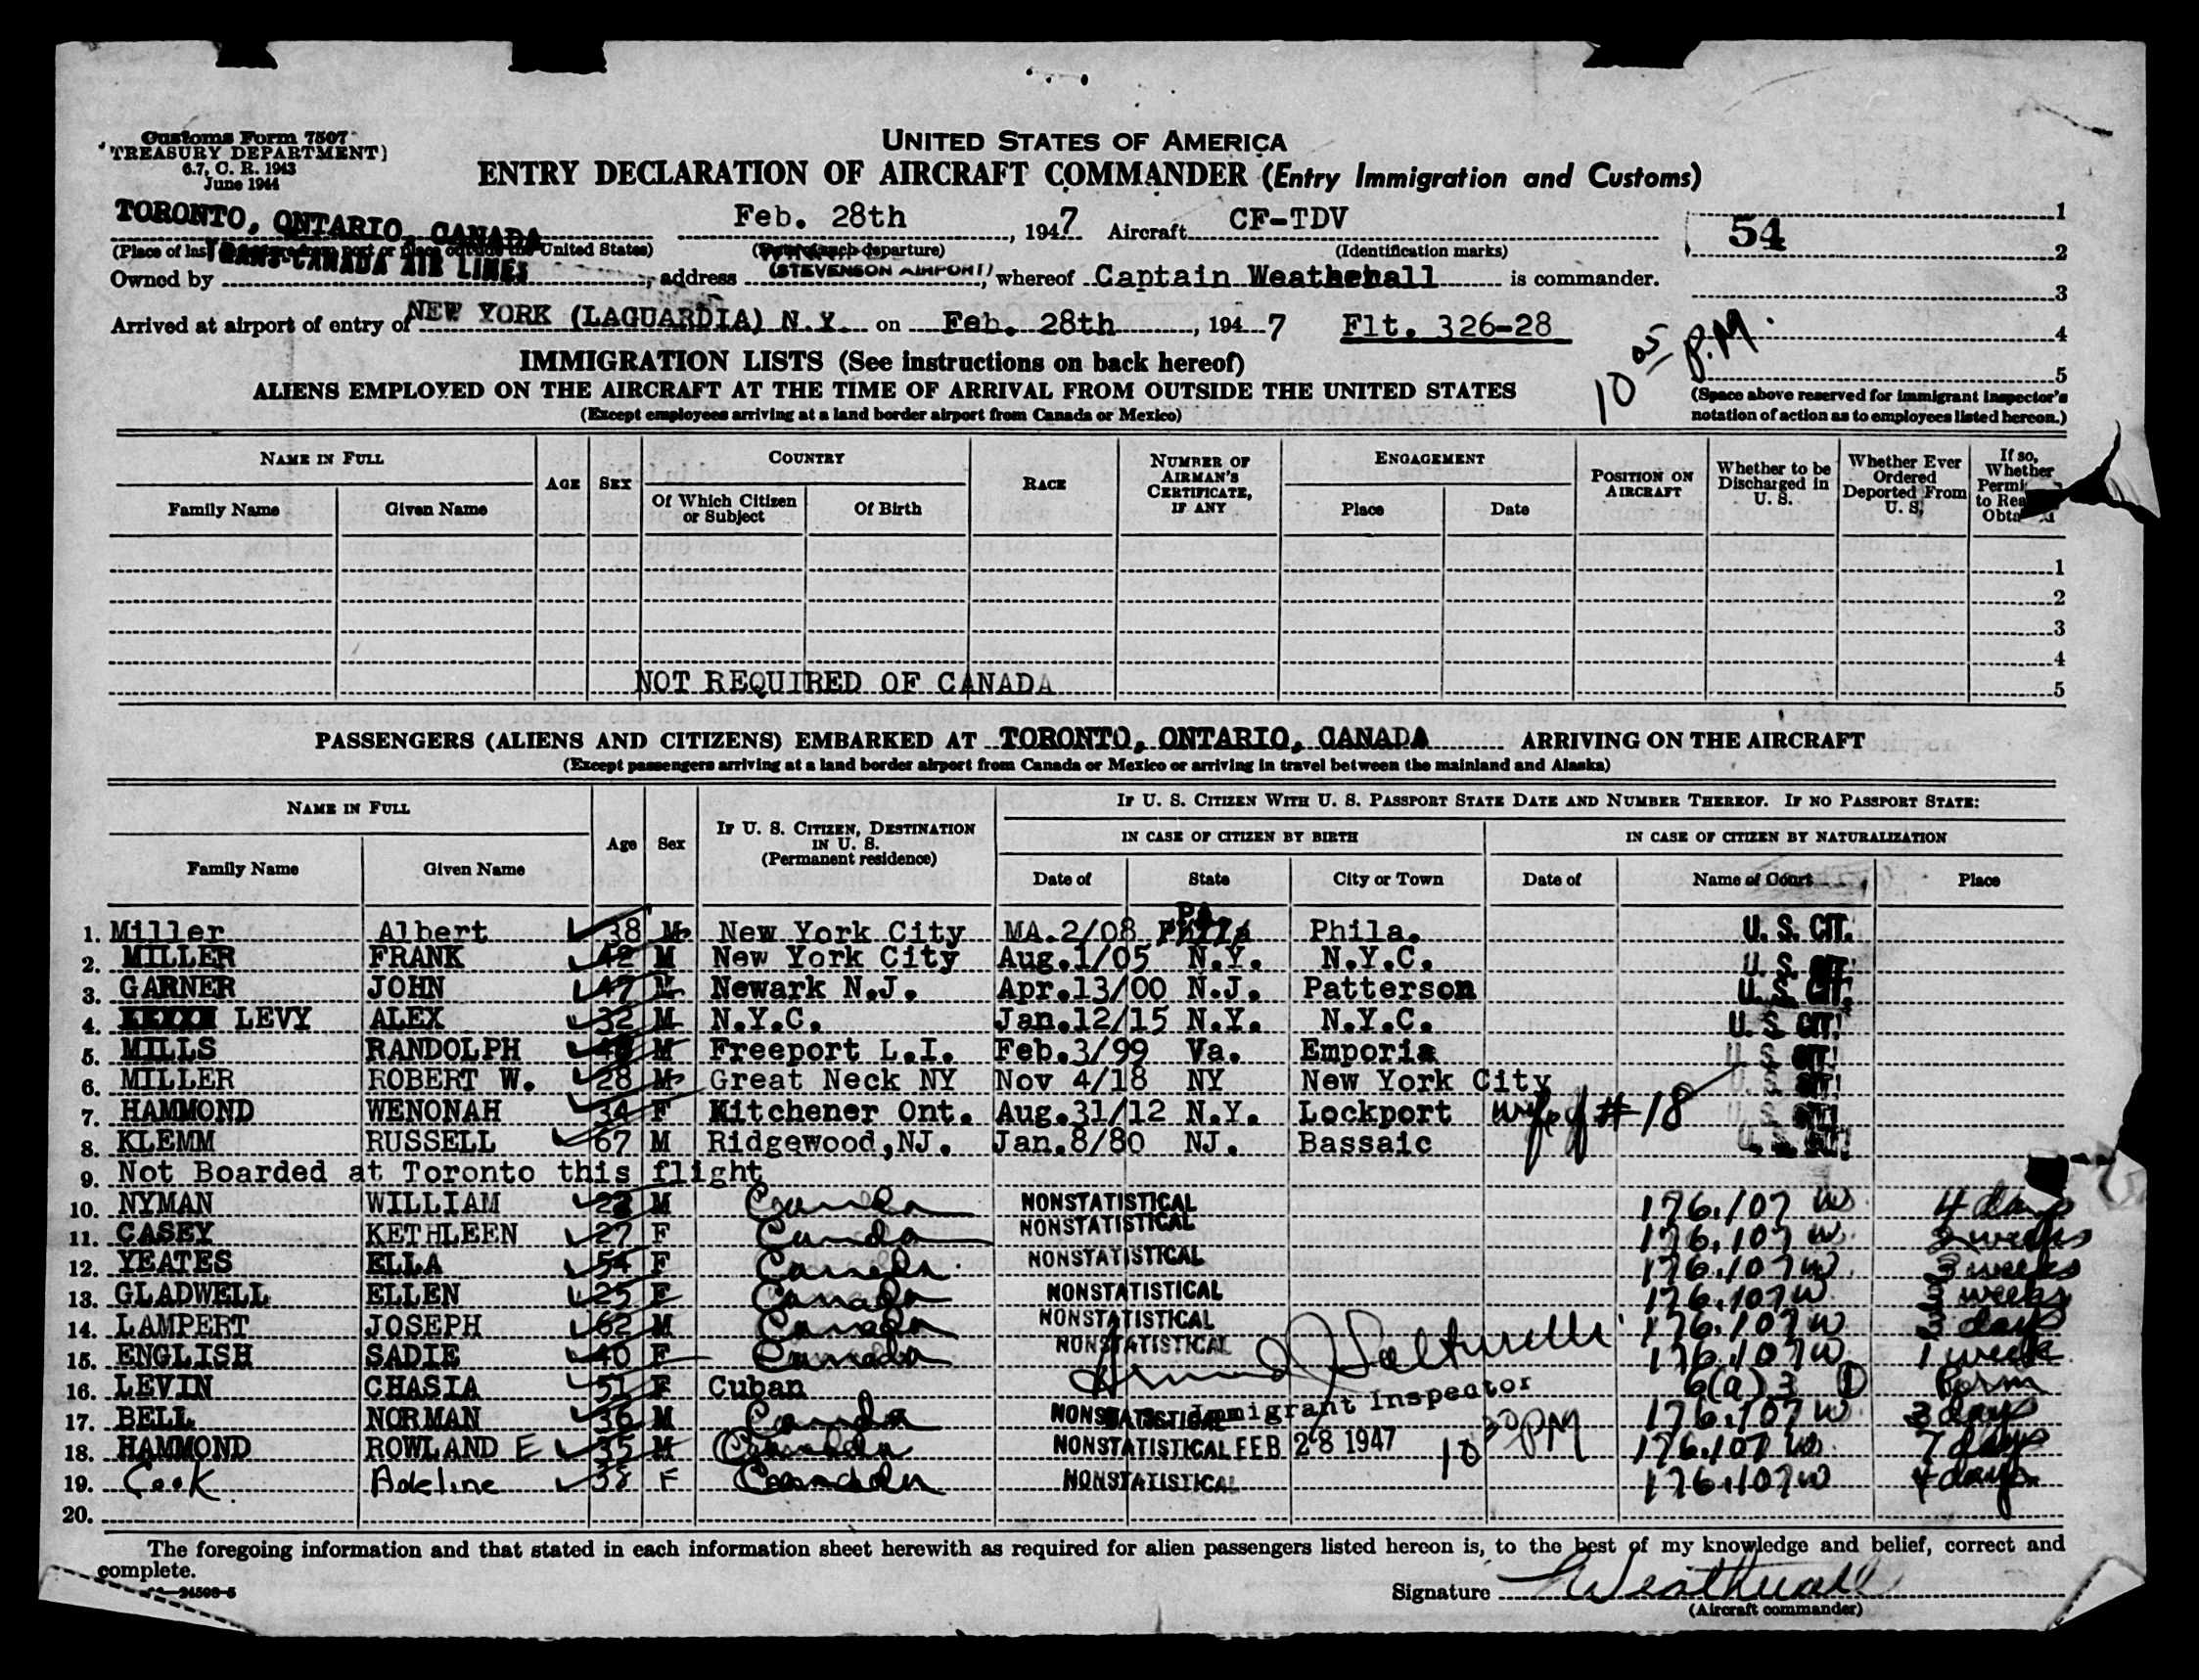 Customs Form 7507
TREASURY DEPARTMENT)
6.7, C. R. 1943
June 1944
UNITED STATES OF AMERICA
ENTRY DECLARATION OF AIRCRAFT COMMANDER (Entry Immigration and Customs)
TORONTO, ONTARIO, CANADA Feb. 28th, 1947 Aircraft CF-TDV
(Place of las United States) departure) (Identification marks)
54
1
2
3
4
5
Owned by TRANS-CANADA AIR LINES, address (STEVENSON AIRPORT), whereof Captain Weatherall is commander.
Arrived at airport of entry of NEW YORK (LAGUARDIA) N.Y. on Feb. 28th, 1947 Flt. 326-28
10 05 P.M.
(Space above reserved for immigrant inspector's
notation of action as to employees listed hereon.)
IMMIGRATION LISTS (See instructions on back hereof)
ALIENS EMPLOYED ON THE AIRCRAFT AT THE TIME OF ARRIVAL FROM OUTSIDE THE UNITED STATES
(Except employees arriving at a land border airport from Canada or Mexico)
NAME IN FULL AGE SEX COUNTRY RACE NUMBER OF AIRMAN'S CERTIFICATE, IF ANY ENGAGEMENT POSITION ON AIRCRAFT Whether to be Discharged in U. S. Whether Ever Ordered Deported From U. S. If so, Whether
Family Name Given Name Of Which Citizen or Subject Of Birth Place Date
1
2
3
4
NOT REQUIRED OF CANADA 5
PASSENGERS (ALIENS AND CITIZENS) EMBARKED AT TORONTO, ONTARIO, CANADA ARRIVING ON THE AIRCRAFT
(Except passengers arriving at a land border airport from Canada or Mexico or arriving in travel between the mainland and Alaska)
NAME IN FULL Age Sex IF U. S. CITIZEN, DESTINATION IN U. S. (Permanent residence) IF U. S. CITIZEN WITH U. S. PASSPORT STATE DATE AND NUMBER THEREOF. IF NO PASSPORT STATE:
IN CASE OF CITIZEN BY BIRTH IN CASE OF CITIZEN BY NATURALIZATION
Family Name Given Name Date of State City or Town Date of Name of Court Place
1. Miller Albert 38 M New York City MA.2/08 PA Phila. U. S. CIT.
2. MILLER FRANK 42 M New York City Aug.1/05 N.Y. N.Y.C. U. S. CIT.
3. GARNER JOHN 47 M Newark N.J. Apr.13/00 N.J. Patterson U. S. CIT.
4. LEVY ALEX 32 M N.Y.C. Jan.12/15 N.Y. N.Y.C. U. S. CIT!
5. MILLS RANDOLPH M Freeport L.I. Feb.3/99 Va. Emporia U. S. CIT!
6. MILLER ROBERT W. 28 M Great Neck NY Nov 4/18 NY New York City U. S. CIT!
7. HAMMOND WENONAH 34 F Kitchener Ont. Aug.31/12 N.Y. Lockport wife of #18 U. S. CIT!
8. KLEMM RUSSELL 67 M Ridgewood,NJ. Jan.8/80 NJ. Bassaic U. S. CIT!
9. Not Boarded at Toronto this flight
10. NYMAN WILLIAM M Canada NONSTATISTICAL 176.107 W 4 days
11. CASEY KETHLEEN 27 F Canada NONSTATISTICAL 176.107 W weeks
12. YEATES ELLA 54 F Canada NONSTATISTICAL 176.107 W 3 weeks
13. GLADWELL ELLEN 25 F Canada NONSTATISTICAL 176.107 W 3 weeks
14. LAMPERT JOSEPH 62 M Canada NONSTATISTICAL 176.107 W 3 days
15. ENGLISH SADIE 40 F Canada NONSTATISTICAL 176.107 W 1 week
16. LEVIN CHASIA 51 F Cuban 6(a)3 Perm
Immigrant Inspector
17. BELL NORMAN 36 M Canada NONSTATISTICAL 176.107 W 3 days
18. HAMMOND ROWLAND E 35 M Canada NONSTATISTICAL FEB 28 1947 10 30 PM 176.107 W 7 days
19. Cook Adeline 38 F Canada NONSTATISTICAL 176.107 W 4 days
20.
The foregoing information and that stated in each information sheet herewith as required for alien passengers listed hereon is, to the best of my knowledge and belief, correct and
complete.
Signature Weatherall
(Aircraft commander)